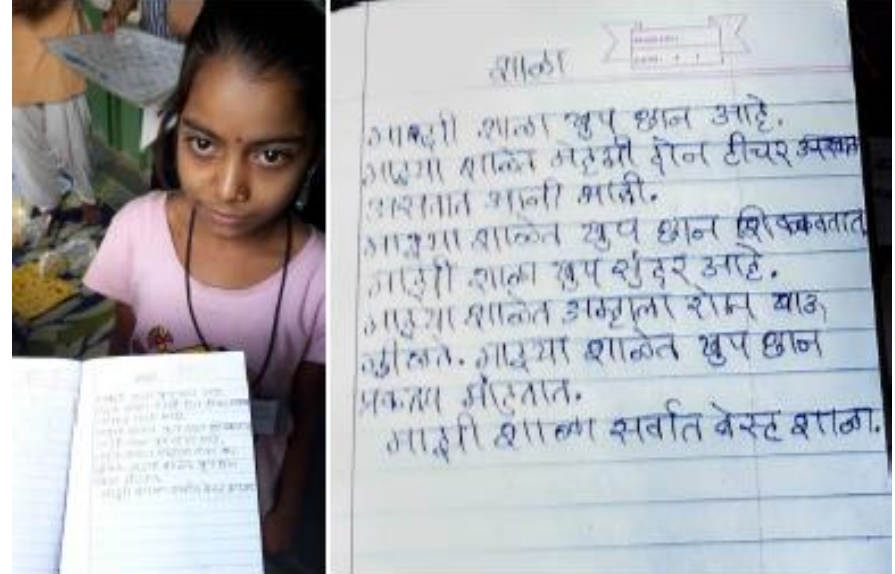 शाळा
माझी शाळा खुप छान आहे.
माझ्या शाळेत नेहमी दोन टीचर उपस्थित
असतात आनी
माझ्या शाळेत खुप छान शिकवतात
माझी शाळा खुप सुंदर आहे.
माझ्या शाळेत अम्हाला रोज खाऊ
मीळते. माझ्या शाळेत खुप छान
प्रकल्प
माझी शाळा सर्वात बेस्ट शाळा.